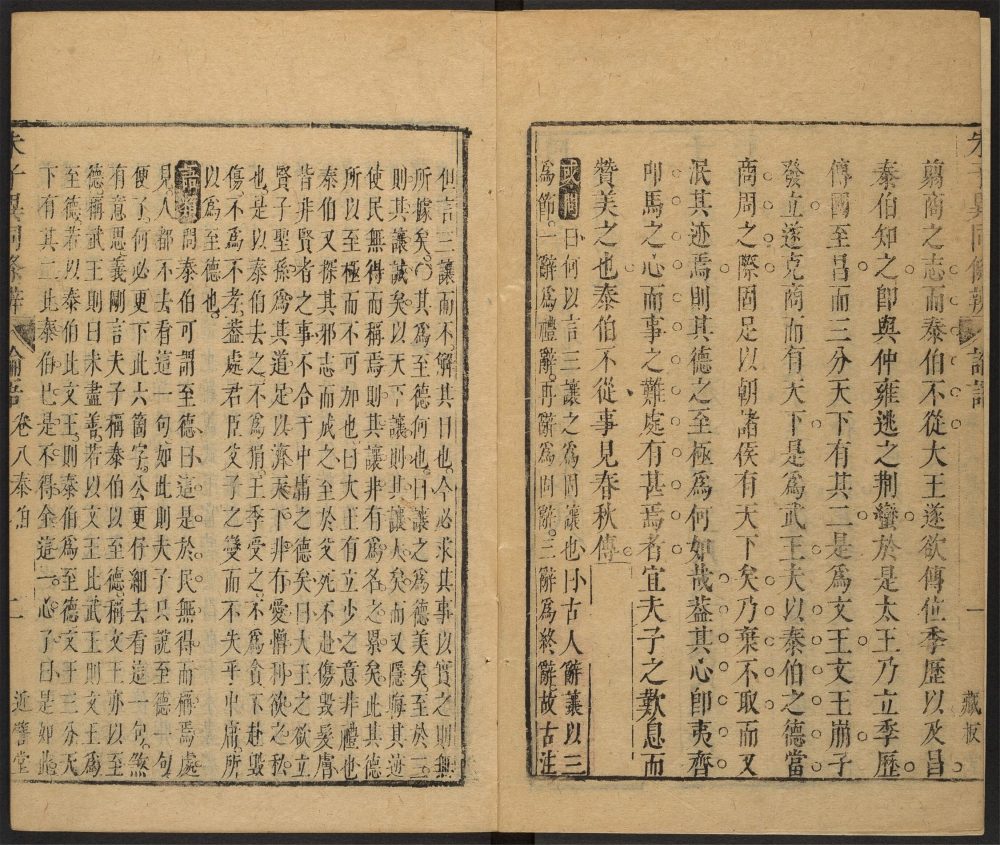 翦商之志而泰伯不從大王遂欲傳位季歷以及昌
泰伯知之卽與仲雍逃之荆蠻於是太王乃立季歷
傳國至昌而三分天下有其二是爲文王文王崩子
發立遂克商而有天下是爲武王夫以泰伯之德當
商周之際固足以朝諸侯有天下矣乃棄不取而又
泯其迹焉則其德之至極爲何如哉葢其心卽夷齊
叩馬之心而事之難處有甚焉者宜夫子之歎息而
贊美之也泰伯不從事見春秋傳
或問曰何以言三讓之爲固讓也曰古人辭讓以三
爲節一辭爲禮辭再辭爲固辭三辭爲終辭故古注
但言三讓而不解其目也今必求其事以實之則無
所據矣○其爲至德何也曰讓之爲德美矣至於三
則其讓誠矣以天下讓則其讓大矣而又隱晦其迹
使民無得而稱焉則其讓非有爲名之累矣此其德
所以至極而不可加也曰大王有立少之意非禮也
泰伯又探其邪志而成之至於父死不赴傷毁髮膚
皆非賢者之事不合于中庸之德矣曰大王之欲立
賢子聖孫爲其道足以濟天下非有愛憎利欲之私
也是以泰伯去之不爲狷王季受之不爲貪不赴毁
傷不爲不孝葢處君臣父子之變而不失乎中庸所
以爲至德也
語類問泰伯可謂至德曰這是於民無得而稱焉處
見人都不去看這一句如此則夫子只說至德一句
便了何必更下此六箇字公更仔細去看這一句煞
有意思義剛言夫子稱泰伯以至德稱文王亦以至
德稱武王則曰未盡善若以文王比武王則文王爲
至德若以泰伯比文王則泰伯爲至德文王三分天
下有其二比泰伯巳是不得全這一心了曰是如此
朱子異同條辨 論語 卷八泰伯 二 近譬堂
朱子異同條辨 論語 一 藏板